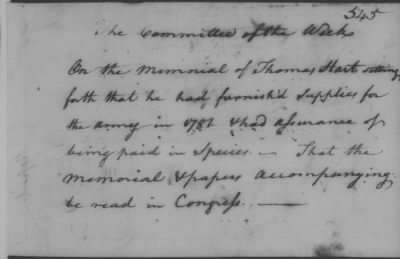 545
The Committee of the Week
On the Memorial of Thomas Hart setting
forth that he had furnish'd supplies for
the army in 1781 & had assurance of
being paid in Specie — That the
Memorial & papers accompanying
be read in Congress. —